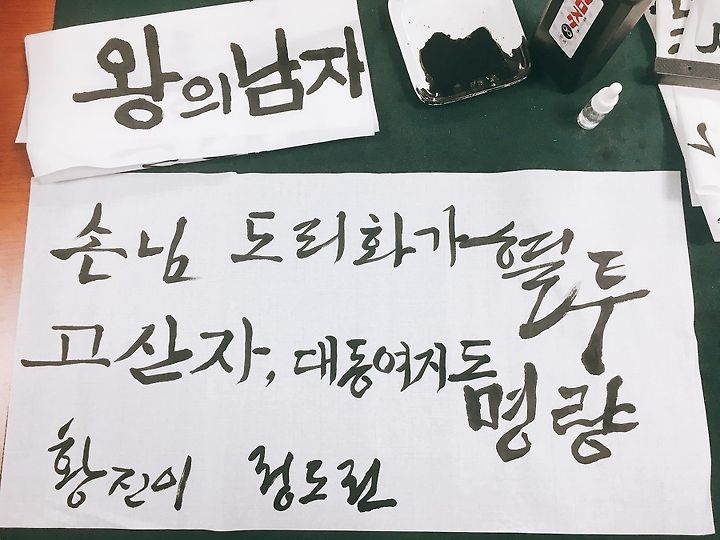 왕의남자
손님 도리화가 혈투
고산자, 대동여지도
명량
황진이 정도전